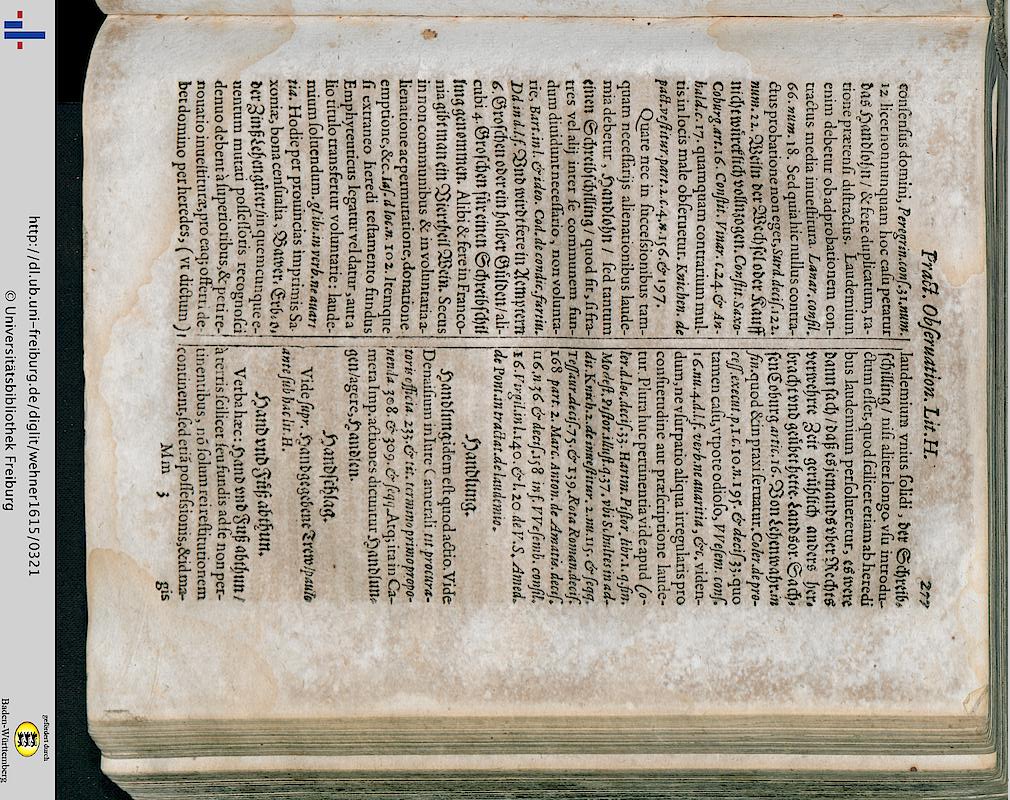 Pract. Observation. Lit. H. 277
consensus domini, Peregrin. cons. 31. num.
12. licet nonnunquam hoc casu petatur
das Handlohn / & fere duplicatum, ra-
tione prætensi distractus. Laudemium
enim debetur ob adprobationem con-
tractus media inuestitura. Lanar. consil.
66. num. 18. Sed quia hic nullus contra-
ctus probatione non eget, Surd. decis. 122.
num. 22. Weiln der Wechsel oder Kauff
nicht würcklich vollnzogen. Constit. Saxo-
Coburg. art. 16. Constit. Vinar. t. 24. & An-
hald. c. 17. quamquam contrarium mul-
tis in locis male obseruetur. Knichen. de
pact. vestitur. part. 2. c. 4. n. 156. & 197.
Quare nec in successionibus tam-
quam necessarijs alienationibus laude-
mia debetur, Handlohn / sed tantum
einen Schreibschilling / quod sit, si fra-
tres vel alij inter se communem fun-
dum diuidunt necessario, non volunta-
riè, Bart. in l. & ideo. Cod. de condic. furtiu.
Dd. in d. l. f. Und wird fere in Aemptern
6. Groschen oder ein halber Gülden / ali-
cubi 4. Groschen für einen Schreibschil-
ling genommen. Alibi & fere in Franco-
nia gibt man ein Viertheil Wein. Secus
in non communibus & in voluntaria a-
lienatione ac permutatione, donatione
emptione, &c. Ias. d. l. num. 102. Itemque
si extraneo heredi testamento fundus
Emphyteuticus legatur vel datur, aut a-
lio titulo transfertur voluntarie: laude-
mium soluendum. gl. ibi. in verb. ne auari
tia. Hodie per prouincias imprimis Sa-
xoniæ, bona censualia, Bawer. Erb. o-
der Zinß Lehengüter / in quemcunque e-
uentum mutati possessoris recognosci
denuo debent à superioribus, & petire-
nouatio inuestituræ pro ea q; offerri, de-
ber domino per heredes, (vt dictum)
laudemium vnius solidi, der Schreib-
schilling / nisi aliter longo vsu introdu-
ctum esset, quod scilicet etiam ab heredi
bus laudemium persolueretur, es were
dann sach / daß es jemands vber Rechts
verwehrte Zeit gerühlich anders her-
bracht vnd geübet hette. Landsor. Sach-
sen Coburg. artic. 16. Von Lehenwahr. in
fin. quod & in praxi seruatur. Coler. de pro-
cess. execut. p. 1. c. 10. n. 195. & decis. 33. quo
tamen casu, vtpote odioso, VVesem. cons.
16. nu. 4. d. l. f. verb. ne auaritia, &c. viden-
dum, ne vsurpatio aliqua irregularis pro
consuetudine aut præscriptione laude-
tur. Plura huc pertinentia vide apud Co-
ler. d. loc. decis. 33. Hartm. Pistor. libr. 1. q. fin.
Modest. Pistor. illust. q. 137. vbi Schultes in ad-
dit. Knich. 2. de inuestitur. 2. nu. 15. & seqq.
Tessaur. decis. 75. & 139. Rota Roman. decis.
108. part. 2. Marc. Anton. de Amatis. decis.
116. n. 36. & decis. 158. in f. VVesemb. consil.
16. Virgil. in l. 140. & l. 20. de V. S. Amed.
de Pont. in tractat. de laudemio.
Handlung.
Handlung idem est, quod actio. Vide
Denaisium in Iure Camerali tit. procura-
toris officia. 233. & tit. termino primo propo-
nenda. 308. & 309. & seqq. Atq; ita in Ca-
mera Imp. actiones dicuntur, Handlun-
gen / agere, Handlen.
Handschlag.
Vide supr. Handgegebene Trew / paulò
ante sub hac lit. H.
Hand vnd Füß abthun.
Verba hæc: Hand vnd Fuß abthun /
à terris scilicet seu fundis ad se non per-
tinentibus, nō solum rei restitutionem
continent, sed etiā possessionis, & id ma-
Mm 3 gis
http://dl.ub.uni-freiburg.de/diglit/wehner1615/0321
© Universitätsbibliothek Freiburg
gefördert durch
Baden-Württemberg